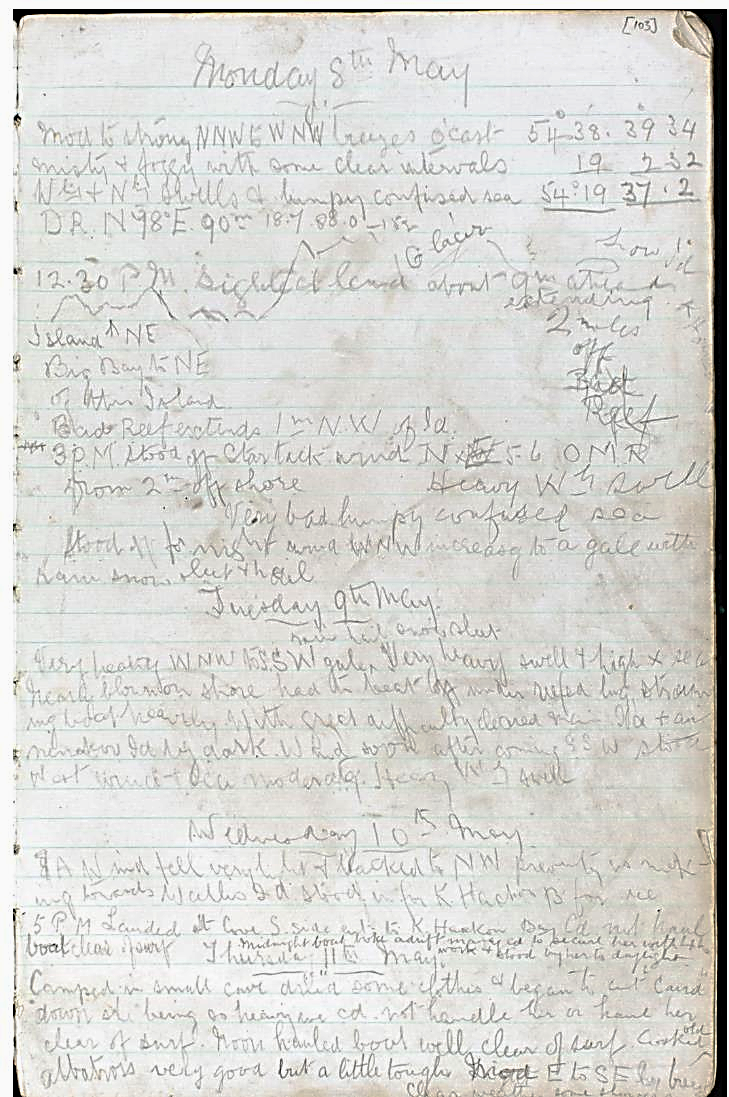 [103]
Monday 8th May
Mod to strong NNW to WNW breezes o'cast 54° 38. 39 34
misty & foggy with some clear intervals 19 2 32
Wly & Nly swells & lumpy confused sea 54° 19 37.2
D R. N 98° E. 90m 18.7 88.0 - 152
Glacier
Snow
12.30 P M. Sighted land about 9m ahead
extending
2 miles
Island NE
off
Big Bay to NE
Bad
of this Island
Reef
Bad Reef extends 1m N.W of Id.
3 P.M. Stood off Star tack wind N
from 2m off shore Heavy Wly swell
Very bad lumpy confused sea
Stood off for night wind WNW increasg to a gale with
rain snow sleet & hail
Tuesday 9th May.
rain hail snow sleet
Very heavy WNW to SSW gale. Very heavy swell & high x sea
Nearly blown on shore had to beat off under reefed lug strain
ing boat heavily. With great difficulty cleared main Ild & an
Id by dark. Wind soon after coming SSW stood
West wind & sea moderatg. Heavy Wly swell
Wednesday 10th May
Wind fell very light & backed to NW preventg us mak-
ing towards Wallis Id stood in for K Haakon B for ice
5 P M Landed at Cove S. side ent. to K Haakon Bay Cd not haul
boat clear of surf
Midnight boat broke adrift managed to secure her with
Thursday 11th May
work & stood by her to daylight
Camped in small cave dried some clothes & began to cut Caird
down she being so heavy we cd. not handle her or haul her
clear of surf. Noon hauled boat well clear of surf. Cooked
old
albatross very good but a little tough. Mod E to SE ly breeze
Clear weather some showers